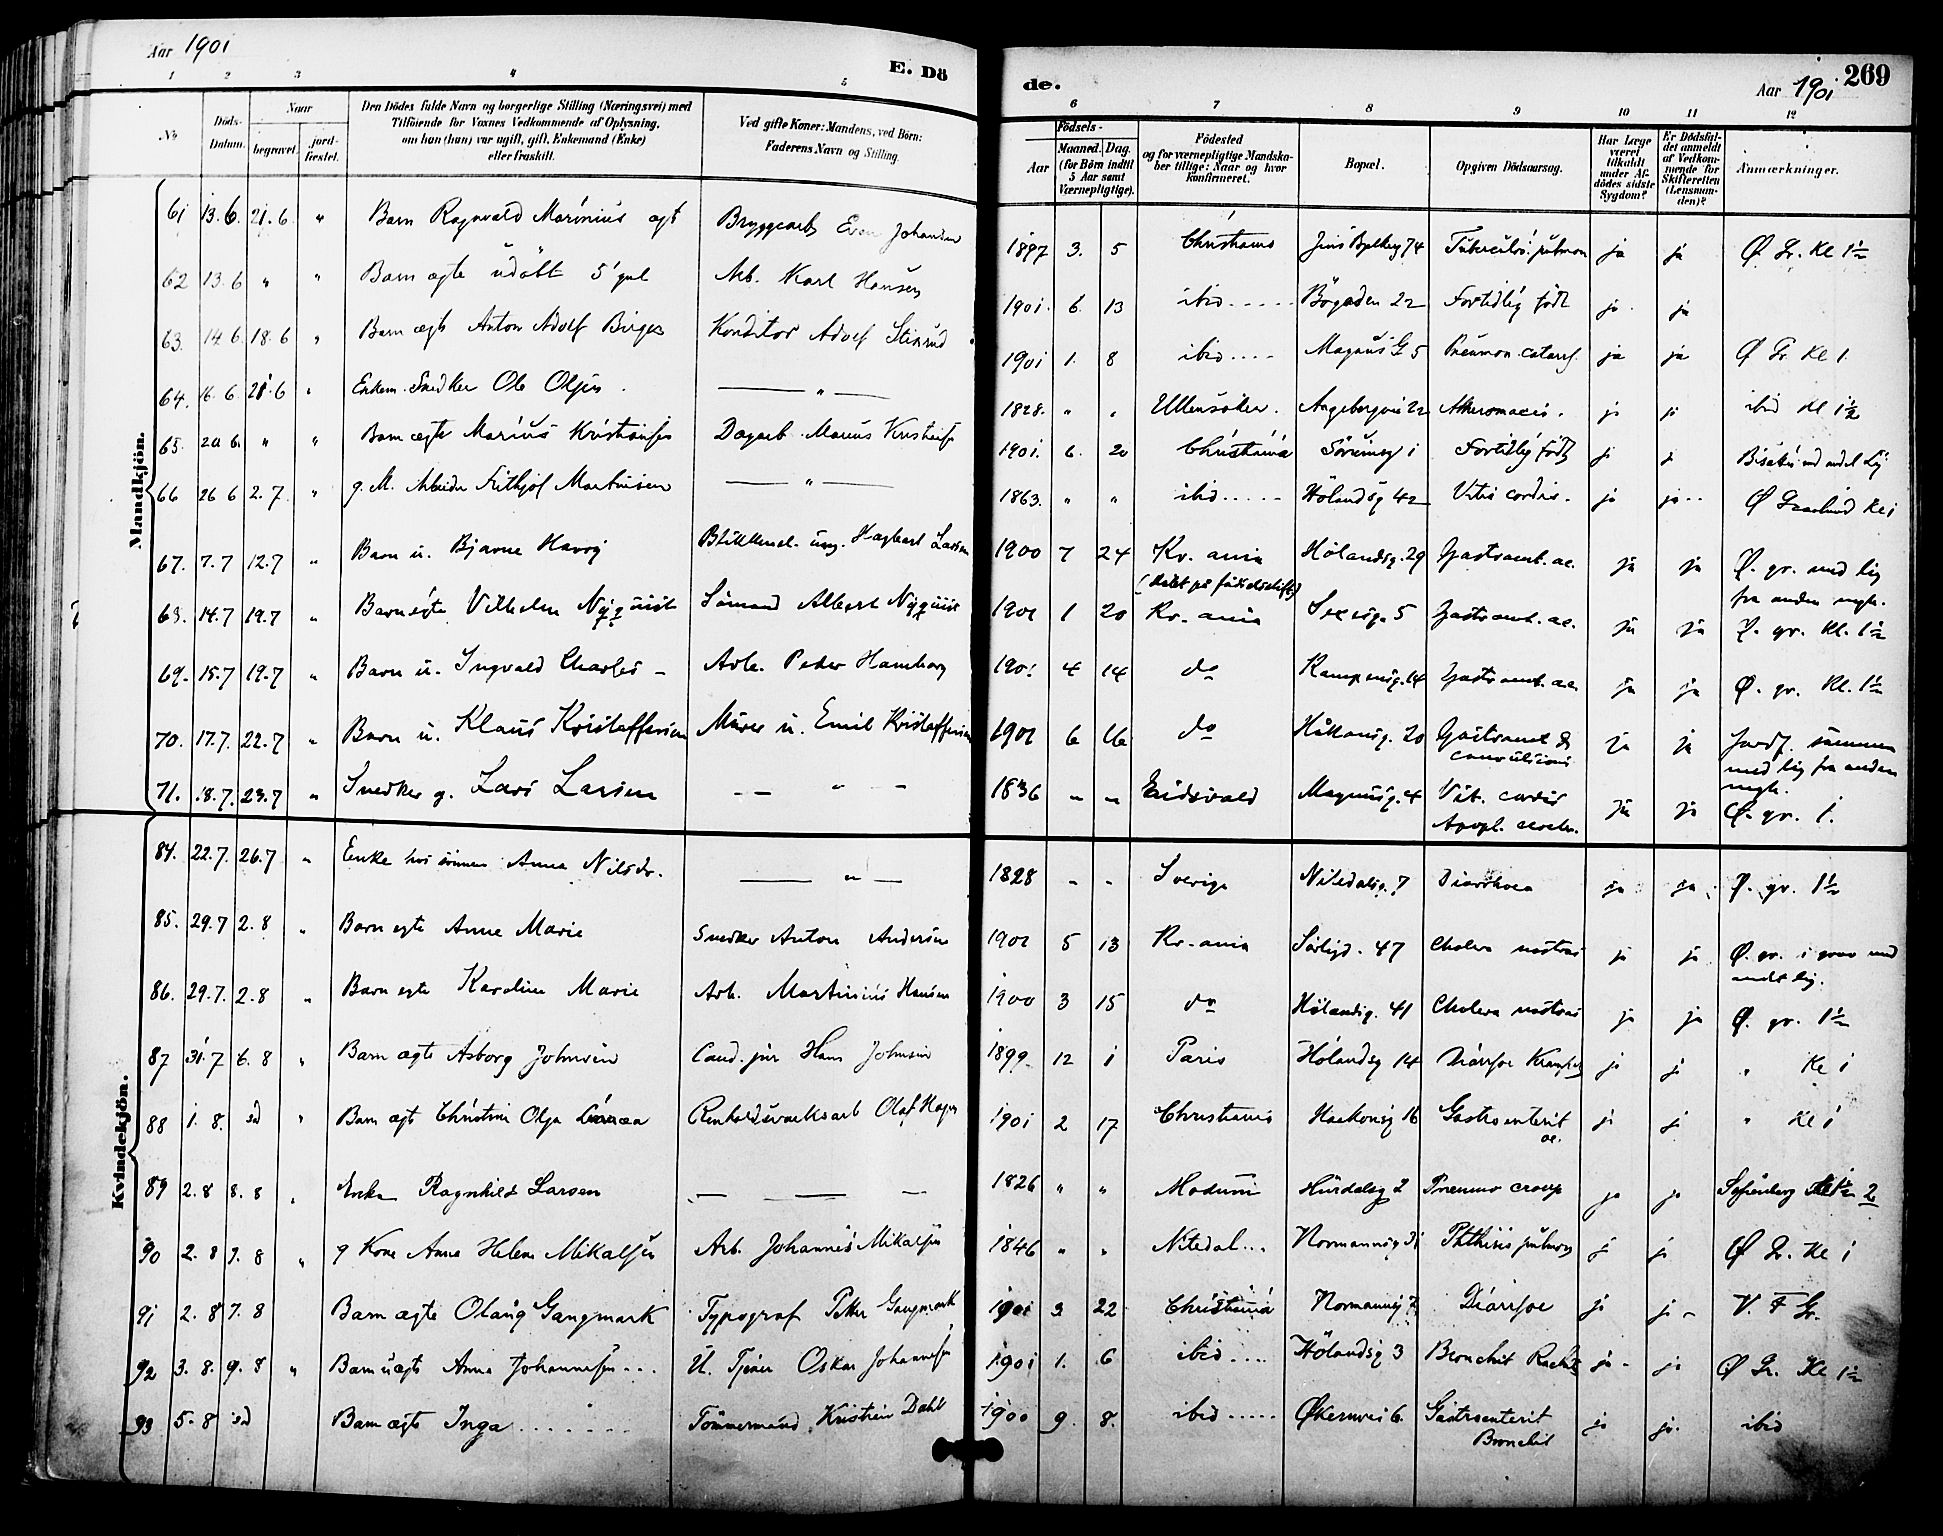 Aar 1901
E. Dö
de.
Aar 1901
269
1 2 3 4 5 6 7 8 9 10 11 12
No
Döds-
Datum.
Naar
begravet.
jord-
fæstet.
Den Dödes fulde Navn og borgerlige Stilling (Næringsvei) med
Tilföiende for Voxnes Vedkommende af Oplysning,
om han (hun) var ugift, gift, Enkemand (Enke)
eller fraskilt.
Ved gifte Koner: Mandens, ved Börn:
Faderens Navn og Stilling.
Födsels-
Aar
Maaned.
Dag.
(for Börn indtil
5 Aar samt
Værnepligtige).
Födested
og for værnepligtige Mandska-
ber tillige: Naar og hvor
konfirmeret.
Bopæl.
Opgiven Dödsaarsag.
Har Læge
været
tilkaldt
under Af-
dödes sidste
Sygdom?
Er Dödsfal-
det anmeldt
af Vedkom-
mende for
Skifteretten
(Lensman-
den)?
Anmærkninger.
Mandkjön.
61 13.6. 21.6 " Barn Ragnvald Marinius ægt Bryggearb Even Johansen 1897 3. 5 Christiania 74 Tuberculos. pulmon ja ja Ø Gr. Kl 1½
62 13.6 " " Barn ægte udöbt 5' gml Arb. Karl Hansen 1901. 6. 13 ibid Bögaden 22 Fortidlig födt ja ja
63. 14.6. 18.6 " Barn ægte Anton Adolf Birger Konditor Adolf Stinsrud 1901 1. 8 ibid Magnus G 5 Pneumon. catarrh. ja ja Ø Gr. Kl 1.
64. 16.6. 21.6 " Enkem. Snedker Ole Olsen " 1828. " " Ullensaker. 22 ja ja ibid Kl 1½
65. 20 6. " " Barn ægte Marius Kristiansen Dagarb. Marius Kristiansen 1901. 6. 20 Christiania Sörumsg 1 Fortidlig födt j j
66 26 6 2.7 " g. M. Arbeider Frithjof Martinsen " 1863. " " ibid Hölandsg 42 Vitis cordis. ja ja Ø Kl 1
67. 7.7 12.7 " Barn u. Bjarne Harry Hagbart Larsen 1900 7 24 Kr.ania Hölandsg. 29 Gastroent. ac. ja ja Ø. gr. med lig
fra anden mgh.
68. 14.7 19.7 " Barn ægte Vilhelm Nyquist Sömand Albert Nyquist 1901 1 20 Kr. ania 5 Gastroent. ac. ja ja Ø. gr. Kl. 1½
69. 15.7 19.7 " Barn u. Ingvald Charles Arb. Peder Hamborg 1901 4 14 do Kampensg. 14 Gastroent. ac. ja ja Ø. gr. Kl. 1½
70. 17.7. 22.7 " Barn u. Klaus Kristoffersen Murer u. Emil Kristoffersen 1901 6 16 do Håkonsg. 20 Gastroent &
convulsions ja ja Jordf. sammen
med lig fra anden
mgh.
71. 18.7. 23.7 " Snedker g. Lars Larsen " 1836 " " Eidsvold Magnusg. 4 Vit. cordis
Apopl. cerebr. ja ja Ø. gr. 1.
Kvindekjön.
84. 22.7. 26.7 " Enke hos sönnen Anna Nilsdr. " 1828 " " Sverige Nitedalsg. 7 Diarrhoea ja ja Ø. gr. 1½
85. 29.7 2.8 " Barn egte Anne Marie Snedker Anton Andersen 1901 5 13 Kr.ania Sörligd. 47 Cholera nostras ja ja Ø. gr. i grav med
andet lig.
86. 29.7. 2.8 " Barn egte Karoline Marie Arb. Martinius Hansen 1900 3 15 do Hölandsg. 41 Cholera nostras ja ja Ø. gr. 1½
87 31.7 6.8 " Barn ægte Asborg Johnsen Cand. jur Hans Johnsen 1899 12 1 Paris Hölandsg 14 Diarrhoe Kramper j j " Kl 1
88 1.8. sd " Barn ægt Christine Olga Linnæa Renholdsværksarb Olaf Hagen 1901 2 17 Christiania Haakonsg 16 Gastroenterit
ac. j j " Kl 1
89 2.8 8.8 " Enke Ragnhild Larsen 1826 " " Modum Hurdalsg 2 Pneumo croup ja ja Sofienberg 2
90 2.8 7.8 " g Kone Anna Helene Mikalsen Arb. Johannes Mikalsen 1846 " " Nitedal Normannsg 31 Phthisis pulmon j j Ø Gr. Kl 1
91 2.8 7.8 Barn ægte Olaug Gangmark Typograf Petter Gangmark 1901 3 22 Christiania Normannsg Diarrhoe j j V. F Gr.
92 3.8. 9.8 " Barn uægt Anna Johannesen U. Tjener Oskar Johannesen 1901 1. 6 ibid Hölandsg 3 Bronchit Rachit ja ja Ø Gr. Kl 1½
93 5.8 sd Barn ægte Inga Tömmermand Kristian Dahl 1900 9. 8. ibid Økernvei 6. Gastroenterit
Bronchit ja ja ibid